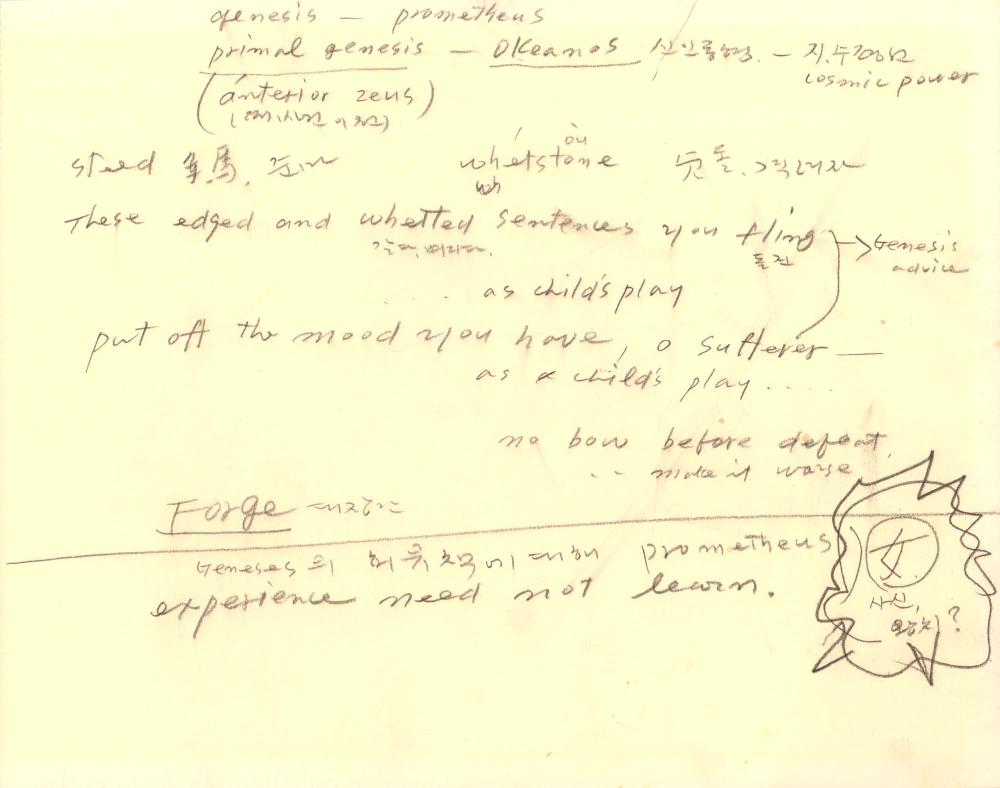 genesis — prometheus
primal genesis — OKeanos 신인동형. — 지.수
(anterior zeus) cosmic power
steed 馬. 준마 whetstone 숫돌.
ou
wh
These edged and whetted sentences you fling → Genesis
갈다. 돌진 advice
.... as child's play
put off the mood you have, o sufferer —
as a child's play .....
no bow before defeat.
.. make it worse
Forge 대장간
Geneses의 에 대해 prometheus
experience need not learn.
女.
사신,
?